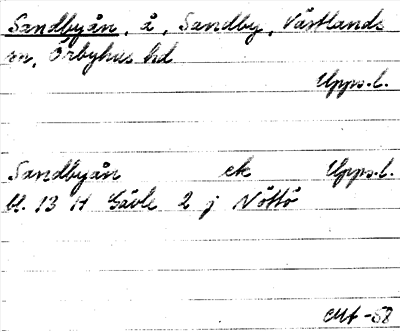 Sandbyån, å, Sandby, Västlands
sn, Örbyhus hd
Upps.l.
Sandbyån ek Upps.l.
bl. 13 H Gävle 2 j Nöttö
-58